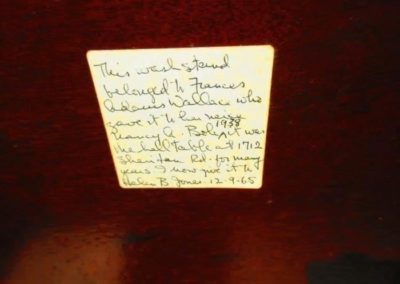 This wash stand
belonged to Frances
Adams Wallace who
gave it to her neice
Nancy A. 1938 it was
the hall table at 1712
Sheridan Rd. for many
years I now give it to
Helen B Jones. 12-9-65